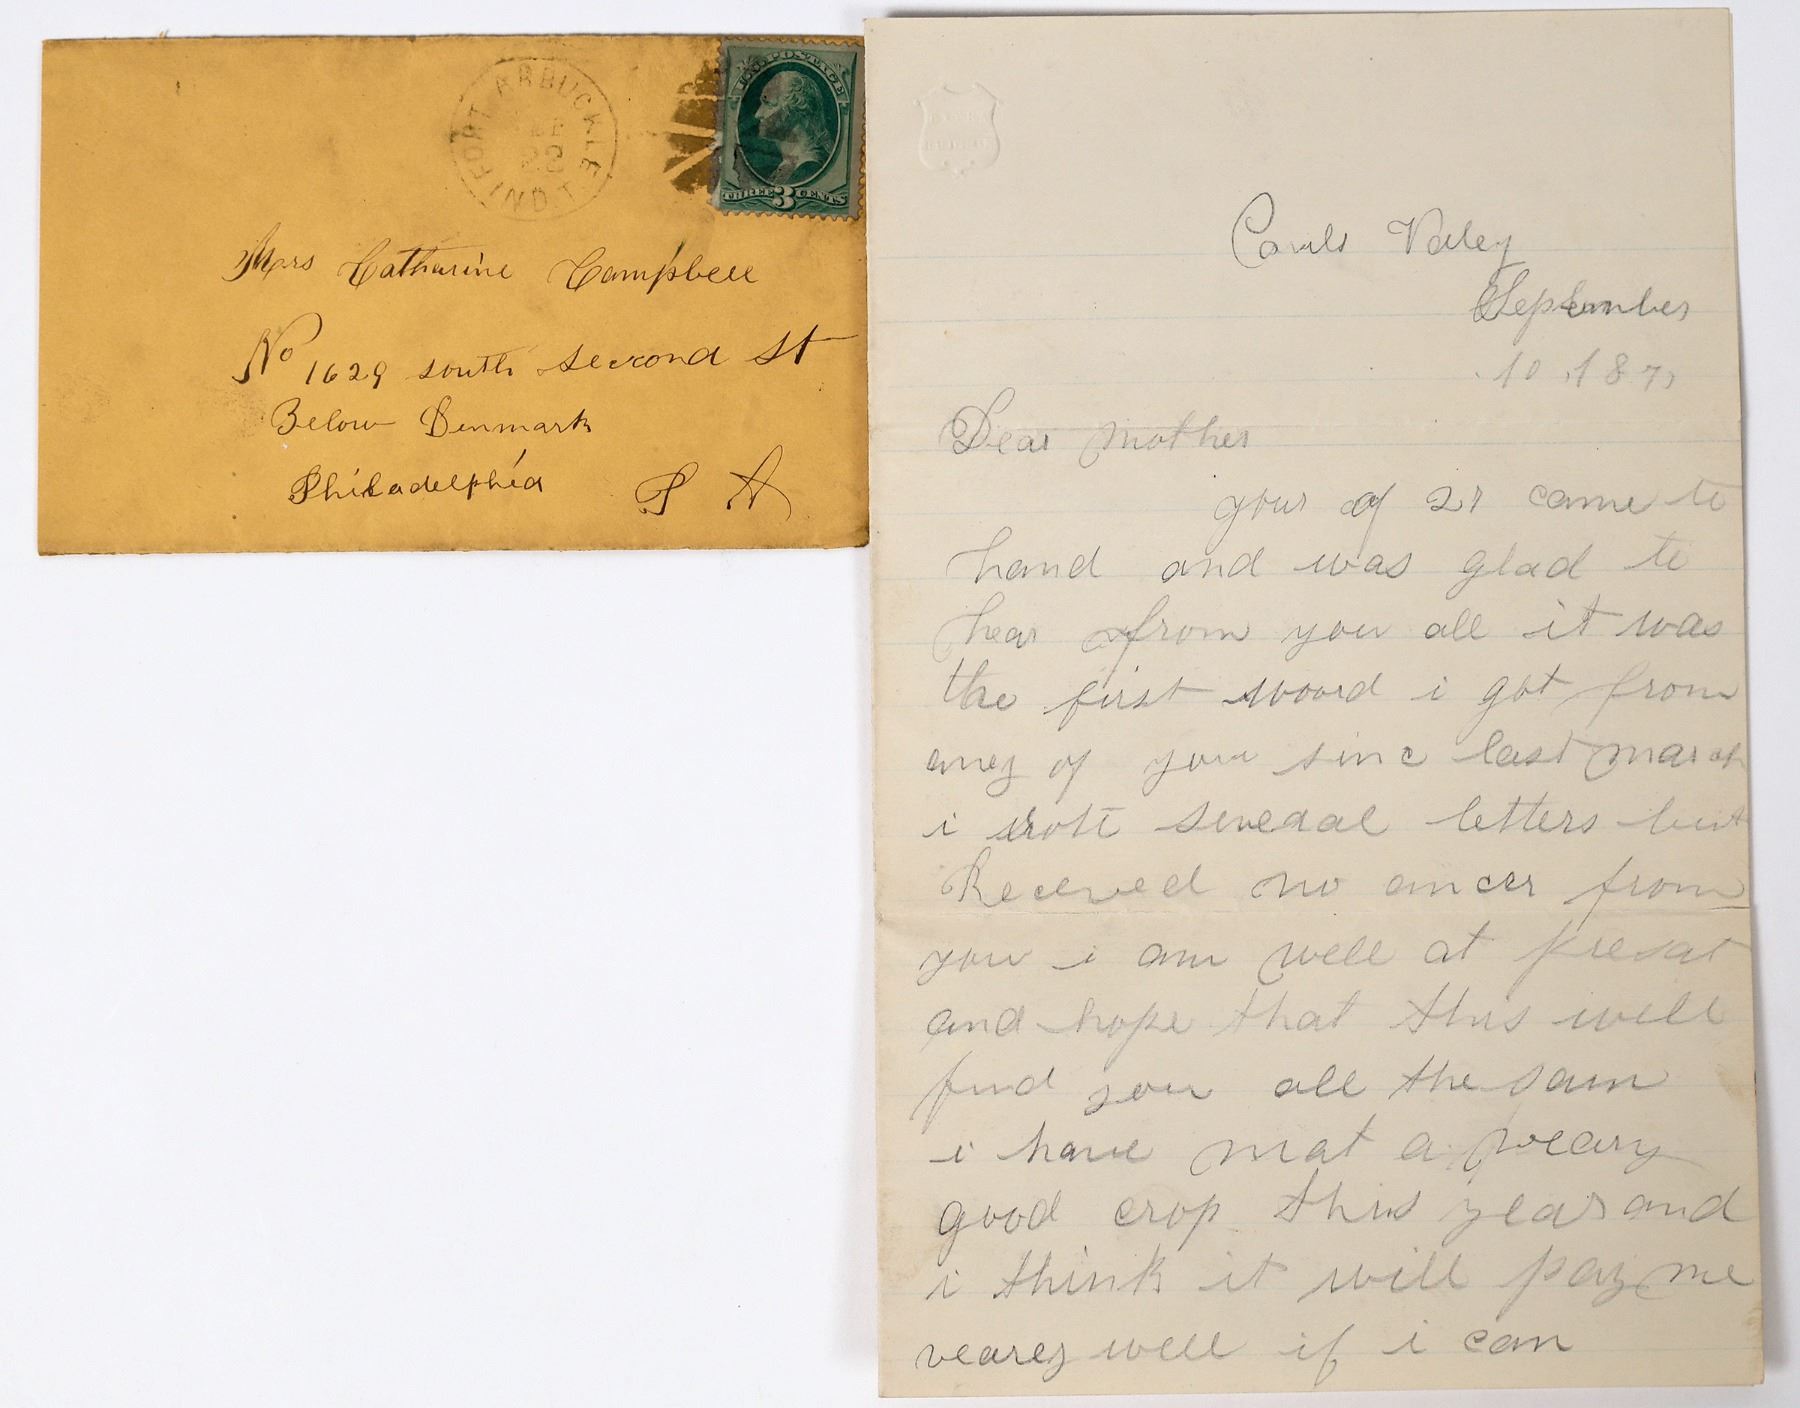 FORT ARBUCKLE
IND. T.
U.S. POSTAGE
THREE 3 CENTS
Mrs Catharine Campbell
No 1629 south second st
Below Denmark
Philadelphia P A
Valey
September
10 187
Dear mother
your of 27 came to
hand and was glad to
hear from you all it was
the first woord i got from
aney of you sinc last march
i wrote sevearal letters but
Received no ancer from
you i am well at presat
and hope that this will
find you all the sam
i have mat a veary
good crop this year and
i think it will pay me
vearey well if i can